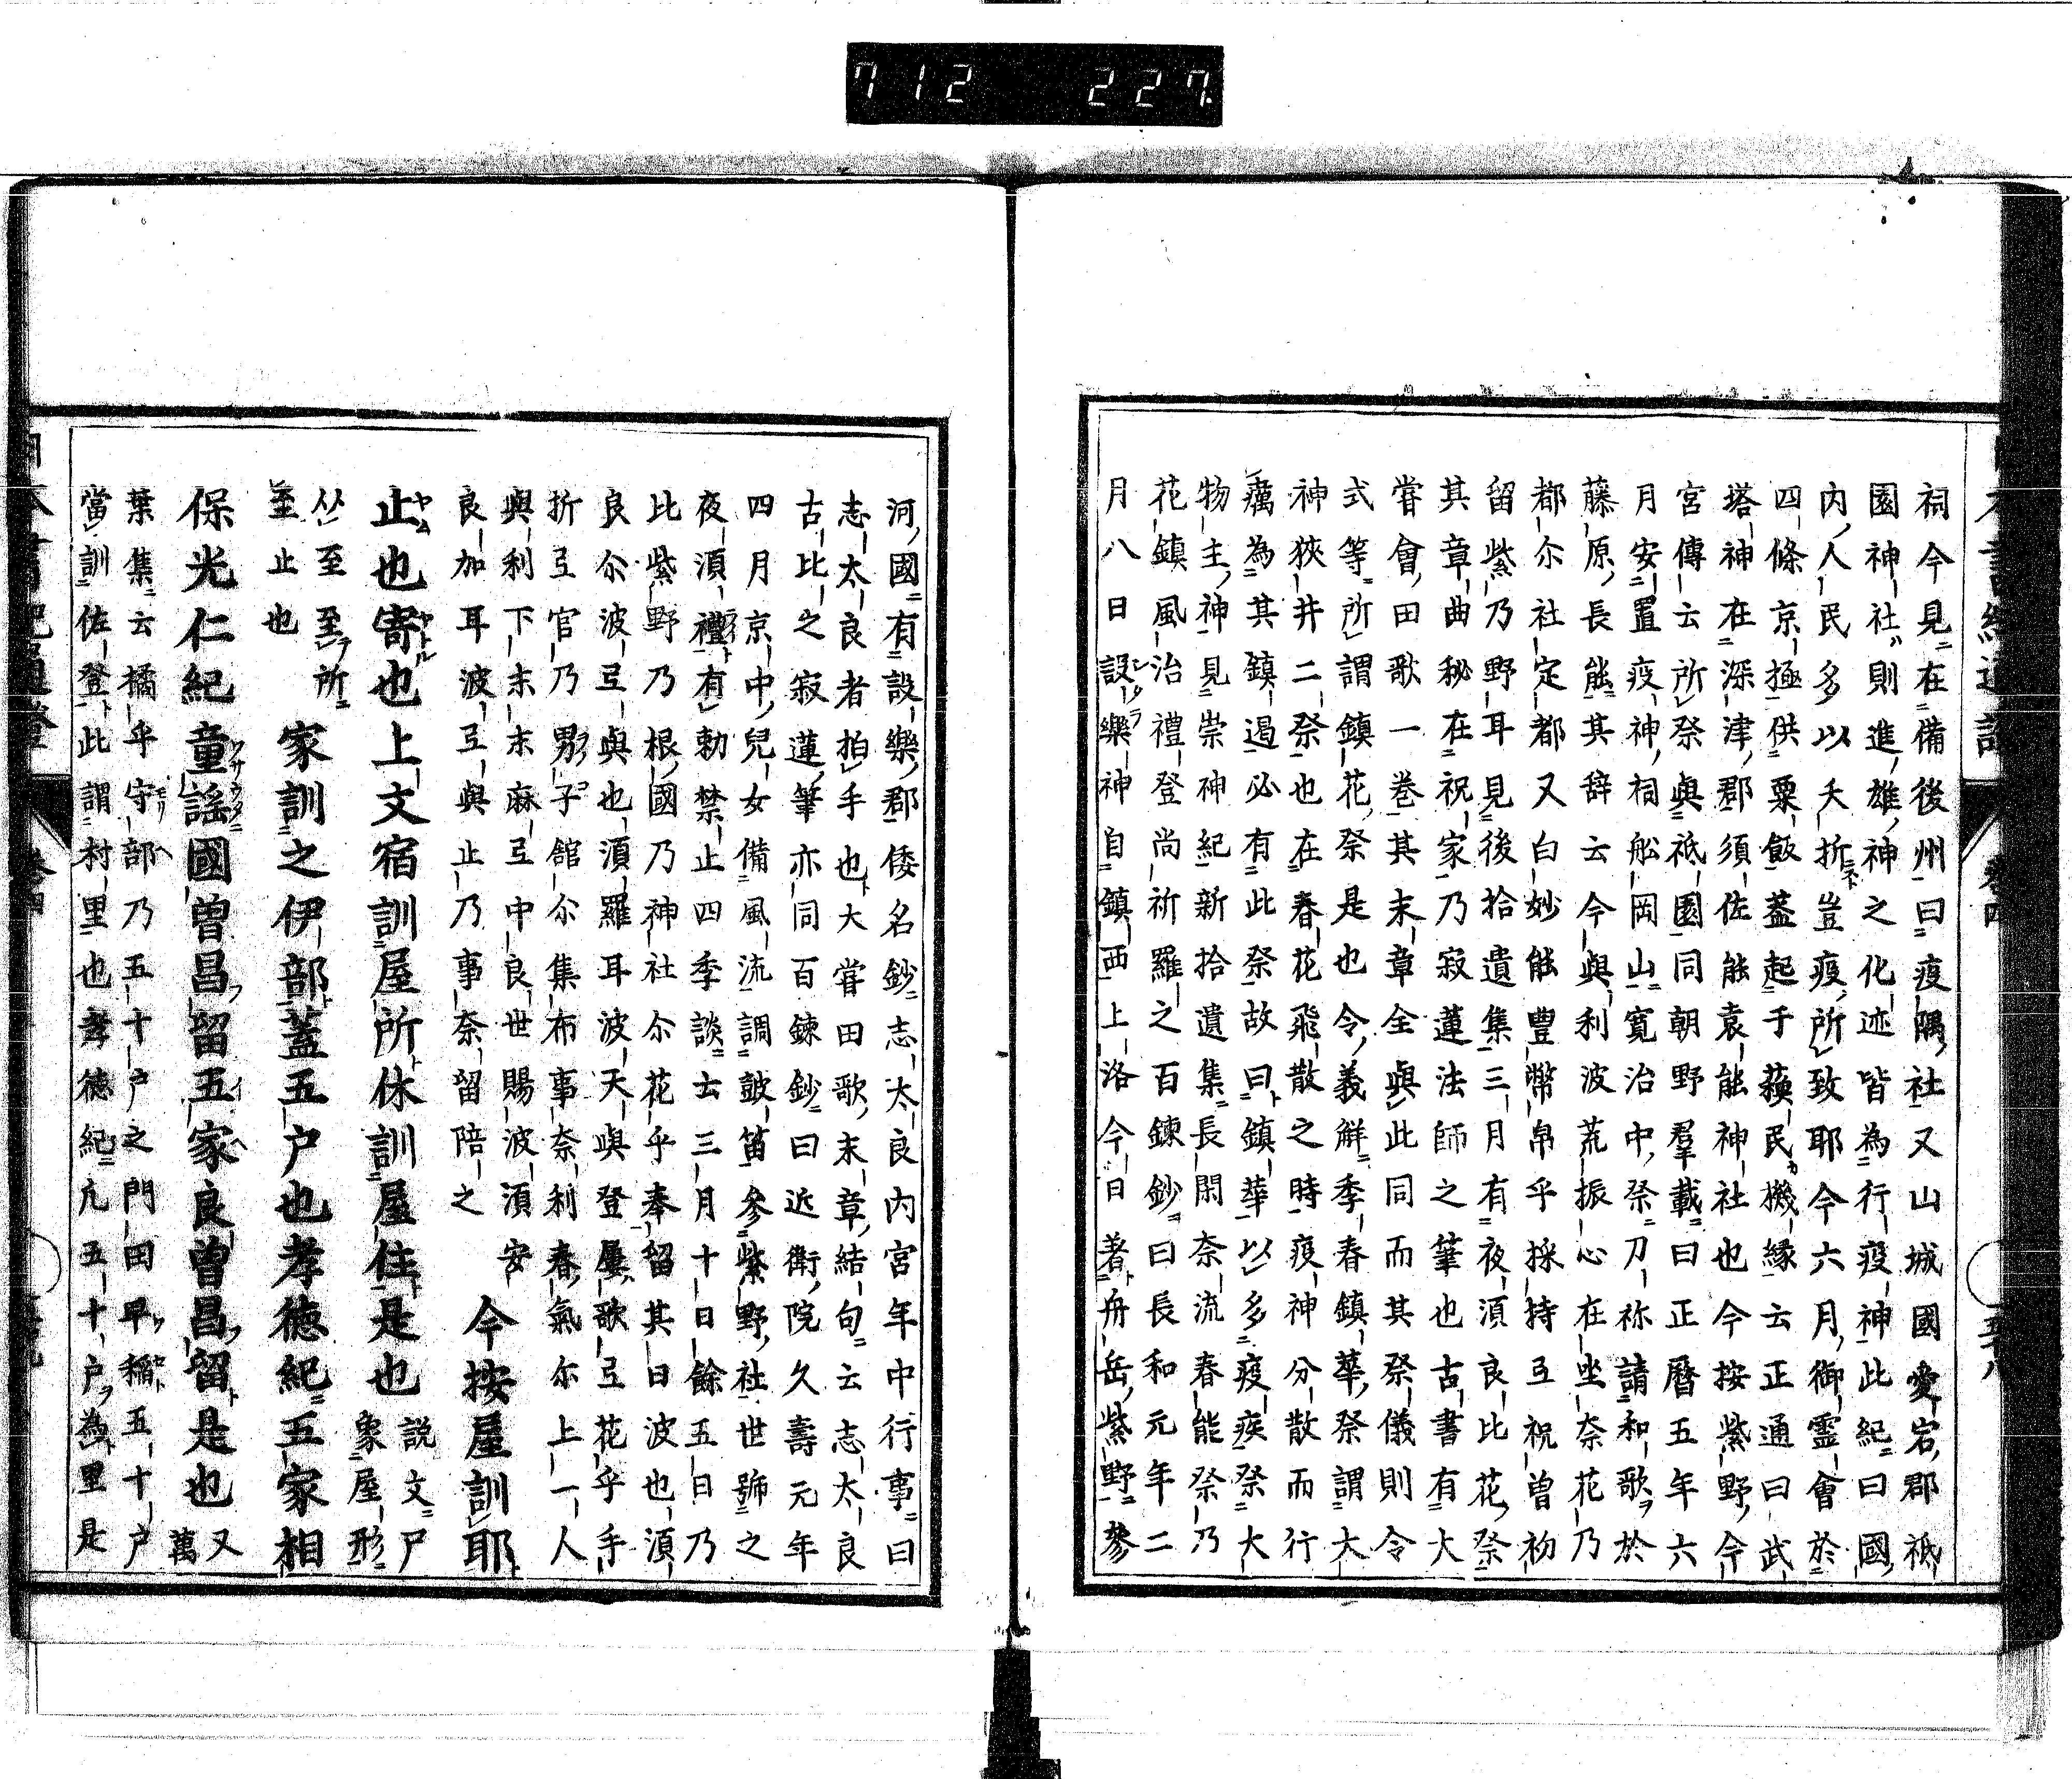 712 227
祠今見在備後州曰疫隅社又山城國愛宕郡祇
園神社則進雄神之化迹皆為行疫神此紀曰國
内人民多以夭折豈疫所致耶今六月御霊會於
四條京極供粟飯蓋起于蘓民機緣云正通曰武
塔神在深津郡須佐能袁能神社也今按紫野今
宮傳云所祭與祇園同朝野羣載曰正曆五年六
月安置疫神祠舩岡山寛治中祭刀祢請和歌於
藤原長能其辞云今與利波荒振心在坐奈花乃
都尓社定都又白妙能豐幣帛乎採持弖祝曽初
留紫乃野耳見後拾遺集三月有夜湏良比花祭
其章曲秘在祝家乃寂蓮法師之筆也古書有大
甞會田歌一卷其末章全與此同而其祭儀則令
式等所謂鎮花祭是也令義解季春鎮華祭謂大
神狹井二祭也在春花飛散之時疫神分散而行
癘為其鎮遏必有此祭故曰鎮華以多疫疾祭大
物主神見崇神紀新拾遺集長閑奈流春能祭乃
花鎮風治禮登尚祈羅之百鍊鈔曰長和元年二
月八日設樂神自鎮西上洛今日著舟岳紫野參
河國有設樂郡倭名鈔志太良内宮年中行事曰
志太良者拍手也大甞田歌末章結句云志太良
古比之寂蓮筆亦同百鍊鈔曰近衛院久壽元年
四月京中兒女備風流調皷笛參紫野社世號之
夜湏禮有勅禁止四季談士三月十日餘五日乃
比紫野乃根國乃神社尓花乎奉留其日波也湏
良尓波弖與也湏羅耳波天與登屢歌弖花乎手
折弖官乃男子館尓集布事奈利春氣尓上一人
與利下末末麻弖中良世賜波湏安
良加耳波弖與止乃事奈留陪之
今按屋訓耶
止也寄也上文宿訓屋所休訓屋住是也
説文尸
象屋形
从至至所
至止也
家訓之伊部蓋五户也孝徳紀五家相
保光仁紀童謡國曽昌留五家良曽昌留是也
又
萬
葉集云橘乎守部乃五十户之門田早稲五十户
當訓佐登此謂村里也孝徳紀凡五十户為里是